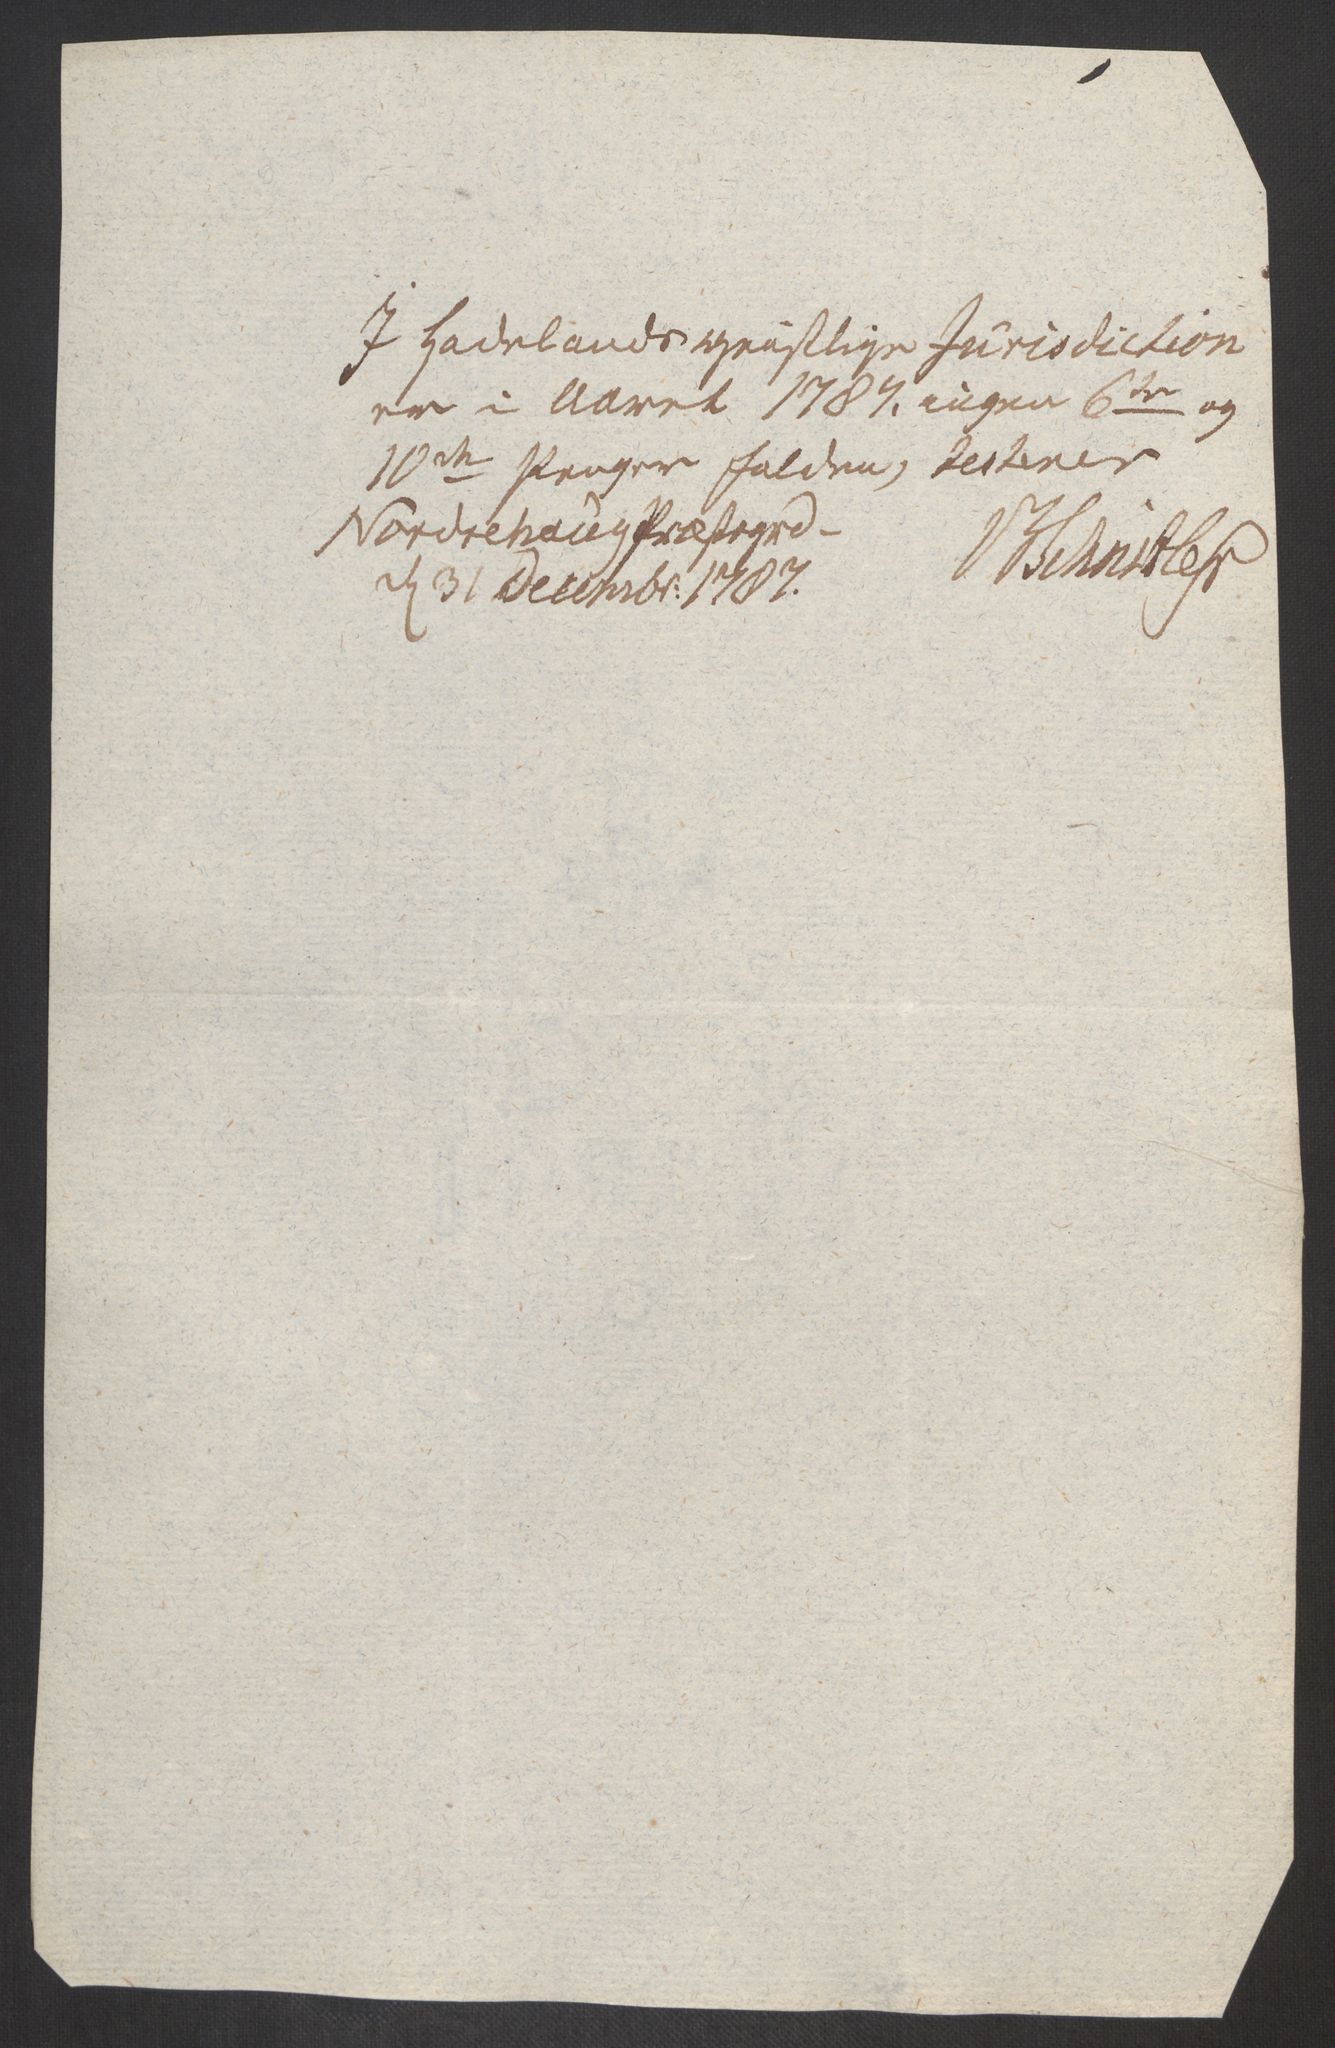 I Hadelands geistlige Jurisdiction
er i Aaret 1787. ingen 6te og
10de Penger falden, testerer
Nordrehaug Præstegrd
d 31 Decembr: 1787.
Schnitler